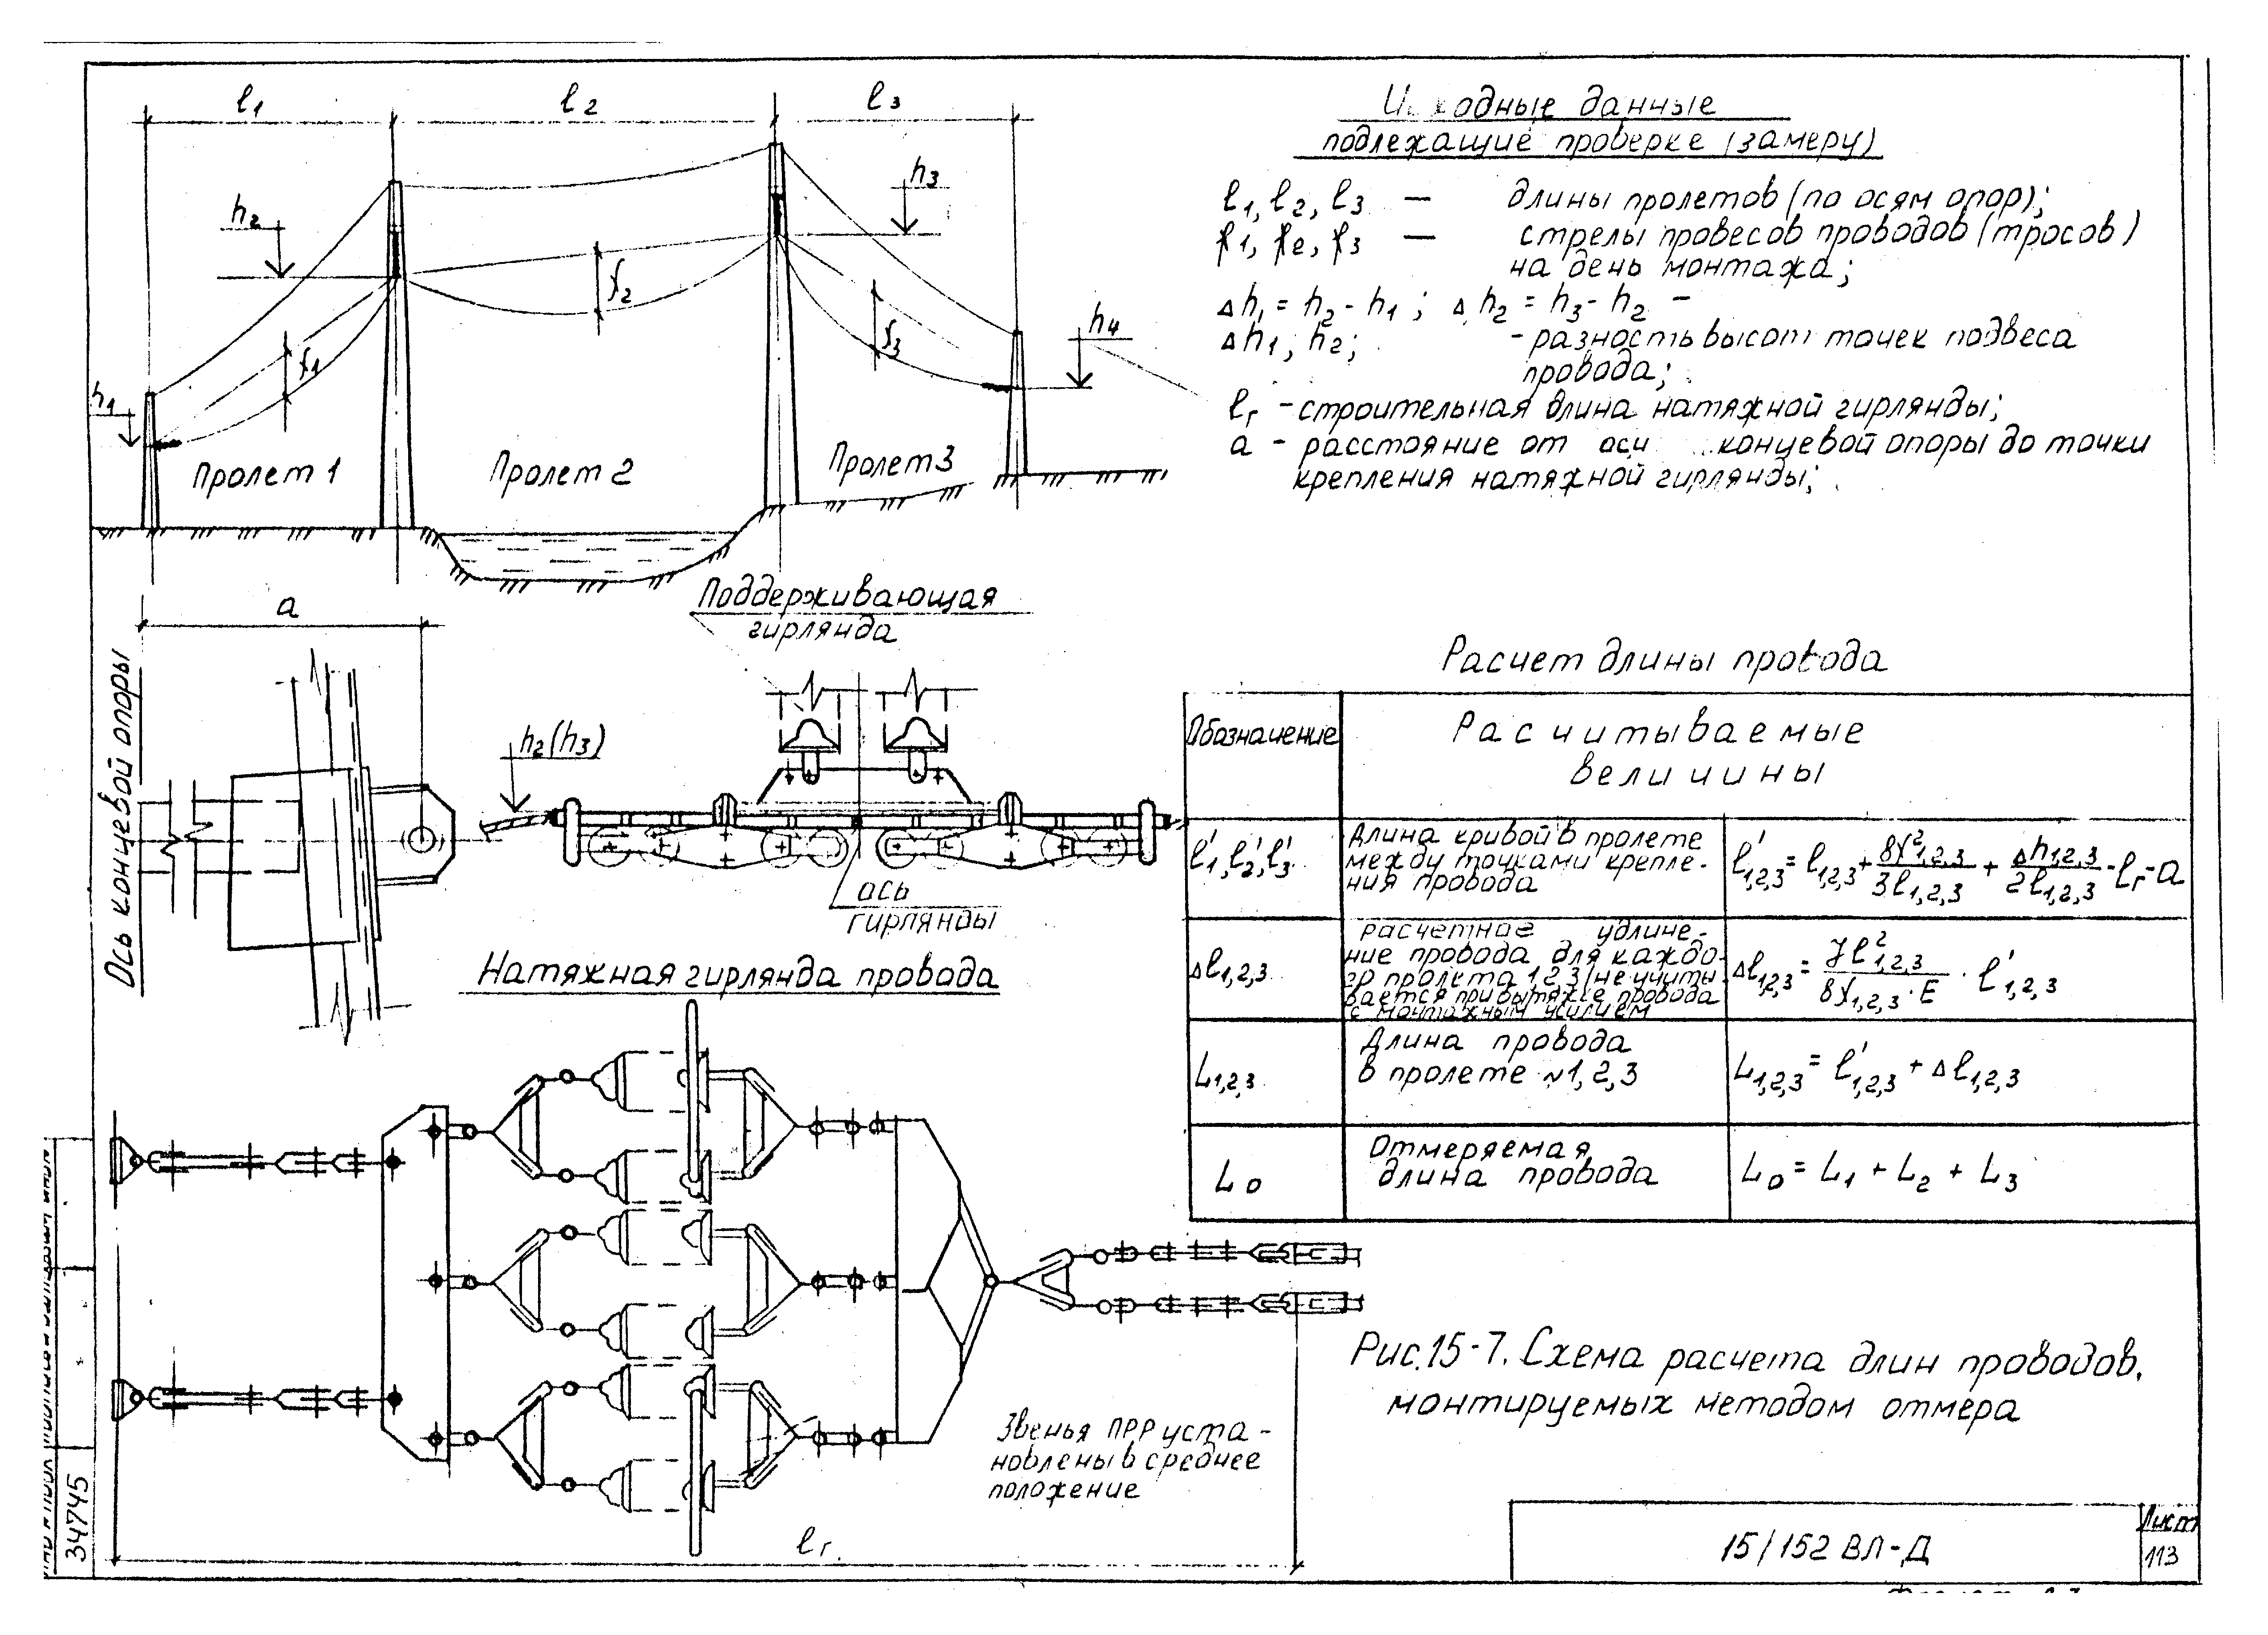 l1
l2
l3
h2
h3
h4
h1
f1
f2
f3
Пролет 1
Пролет 2
Пролет 3
Исходные данные
подлежащие проверке (замеру)
l1, l2, l3 — длины пролетов (по осям опор);
f1, f2, f3 — стрелы провесов проводов (тросов)
на день монтажа;
Δh1 = h2 - h1 ; Δh2 = h3 - h2 -
Δh1, h2; - разность высот точек подвеса
провода;
lг - строительная длина натяжной гирлянды;
а - расстояние от оси концевой опоры до точки
крепления натяжной гирлянды;
а
Ось концевой опоры
Поддерживающая
гирлянда
h2(h3)
ось
гирлянды
Натяжная гирлянда провода
Расчет длины провода
Обозначение
Расчитываемые
величины
l'1, l2', l'3
Длина кривой в пролете
между точками крепле-
ния провода
l'1,2,3 = l1,2,3 + 8f²1,2,3 / 3l1,2,3 + Δh1,2,3 / 2l1,2,3 - lг - а
Δl1,2,3
расчетное удлине-
ние провода для каждо-
го пролета 1,2,3 (не учиты-
вается при вытяжке провода
с монтажным усилием
Δl1,2,3 = γl²1,2,3 / 8f1,2,3 · E · l'1,2,3
L1,2,3
Длина провода
в пролете №1,2,3
L1,2,3 = l'1,2,3 + Δl1,2,3
Lо
Отмеряемая
длина провода
Lо = L1 + L2 + L3
Звенья ПРР уста-
новлены в среднее
положение
lг
Рис.15-7. Схема расчета длин проводов,
монтируемых методом отмера
34745
15/152 ВЛ-Д
Лист
113